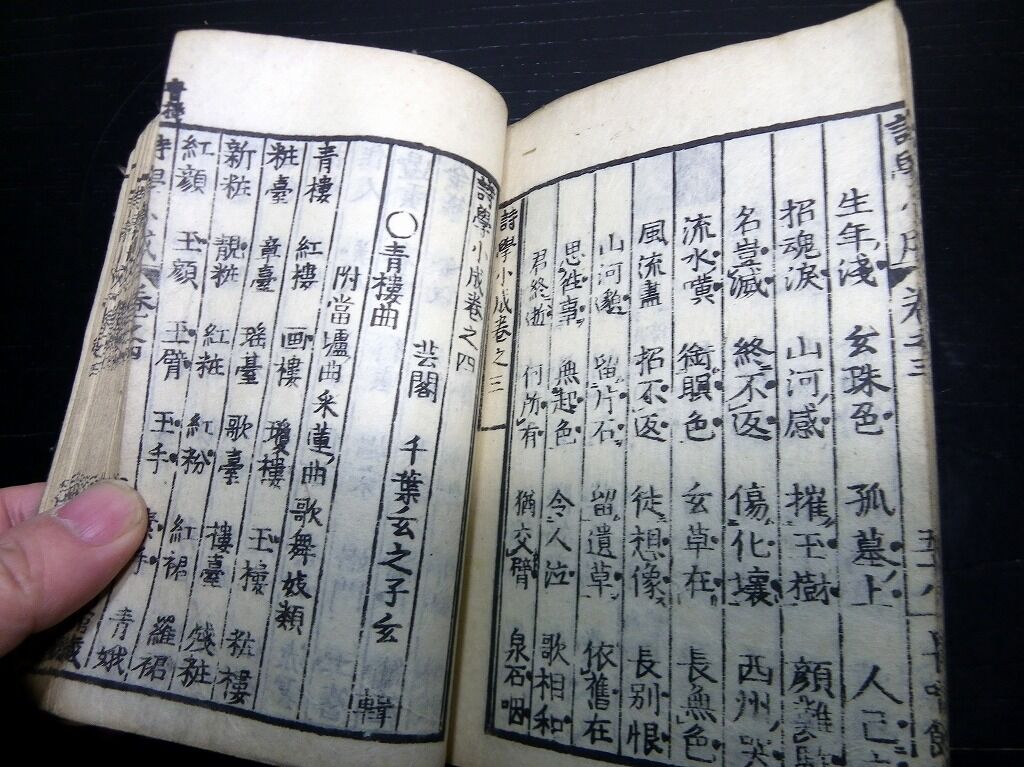 生年淺 玄珠邑 孤墓上 人已
招魂淚 山河感 摧玉樹 顏難
名豈滅 終不返 傷化壤 西州哭
流水嘆 銜賜色 玄草在 長無色
風流盡 招不返 徒想像 長別恨
山河邈 留片石 留遺草 依舊在
思往事 無起色 令人泣 歌相和
君終逝 何所有 猶交臂 泉石咽
詩學小成卷之三
詩學小成卷之四
芸閣 千葉玄之子玄 輯
○青樓曲
附當壚曲采蓮曲歌舞妓類
青樓 紅樓 画樓 瓊樓 玉樓 粧樓
粧臺 章臺 瑶臺 歌臺 樓臺 殘粧
新粧 靚粧 紅粧 紅粉 紅裙 羅裙
紅顔 玉顔 玉臂 玉手 素手 青娥